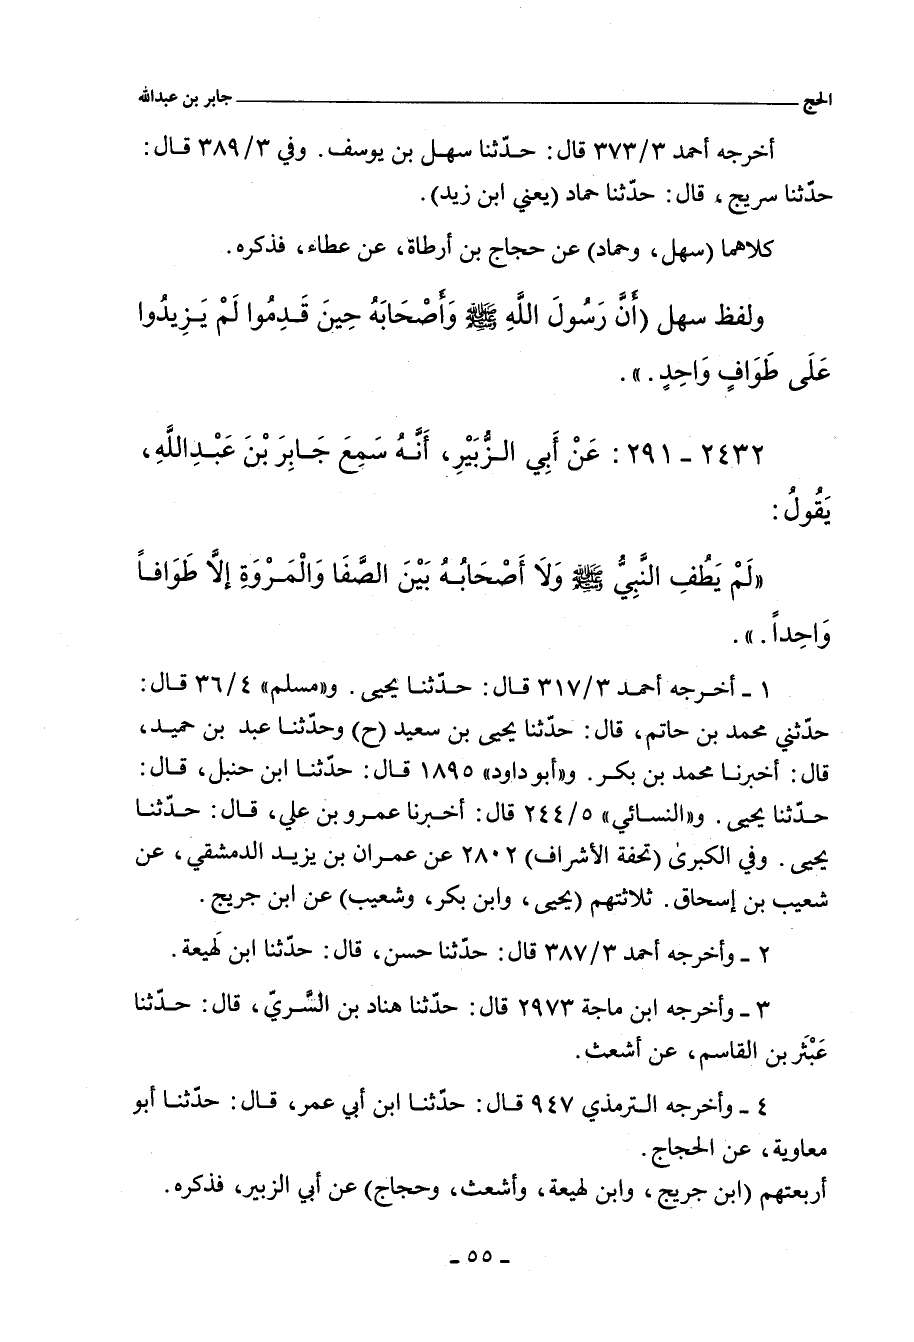 الحج ــــــ جابر بن عبدالله
أخرجه أحمد ٣/٣٧٣ قال: حدّثنا سهل بن يوسف. وفي ٣/٣٨٩ قال:
حدّثنا سريج، قال: حدّثنا حماد (يعني ابن زيد).
كلاهما (سهل، وحماد) عن حجاج بن أرطاة، عن عطاء، فذكره.
ولفظ سهل (أَنَّ رَسُولَ اللَّهِ ﷺ وَأَصْحَابَهُ حِينَ قَدِمُوا لَمْ يَزِيدُوا
عَلَى طَوَافٍ وَاحِدٍ.».
٢٤٣٢ ـ ٢٩١: عَنْ أَبِي الزُّبَيْرِ، أَنَّهُ سَمِعَ جَابِرَ بْنَ عَبْدِاللَّهِ،
يَقُولُ:
«لَمْ يَطُفِ النَّبِيُّ ﷺ وَلَا أَصْحَابُهُ بَيْنَ الصَّفَا وَالْمَرْوَةِ إلَّا طَوَافاً
وَاحِداً.».
١ ـ أخرجه أحمد ٣/٣١٧ قال: حدّثنا يحيى. و«مسلم» ٤/٣٦ قال:
حدّثني محمد بن حاتم، قال: حدّثنا يحيى بن سعيد (ح) وحدّثنا عبد بن حميد،
قال: أخبرنا محمد بن بكر. و«أبو داود» ١٨٩٥ قال: حدّثنا ابن حنبل، قال:
حدّثنا يحيى. و«النسائي» ٥/٢٤٤ قال: أخبرنا عمرو بن علي، قال: حدّثنا
يحيى. وفي الكبرىٰ (تحفة الأشراف) ٢٨٠٢ عن عمران بن يزيد الدمشقي، عن
شعيب بن إسحاق. ثلاثتهم (يحيى، وابن بكر، وشعيب) عن ابن جريج.
٢ ـ وأخرجه أحمد ٣/٣٨٧ قال: حدّثنا حسن، قال: حدّثنا ابن لَهيعة.
٣ ـ وأخرجه ابن ماجة ٢٩٧٣ قال: حدّثنا هناد بن السَّريّ، قال: حدّثنا
عَبْثَر بن القاسم، عن أشعث.
٤ ـ وأخرجه الترمذي ٩٤٧ قال: حدّثنا ابن أبي عمر، قال: حدّثنا أبو
معاوية، عن الحجاج.
أربعتهم (ابن جريج، وابن لهيعة، وأشعث، وحجاج) عن أبي الزبير، فذكره.
ـ ٥٥ ـ